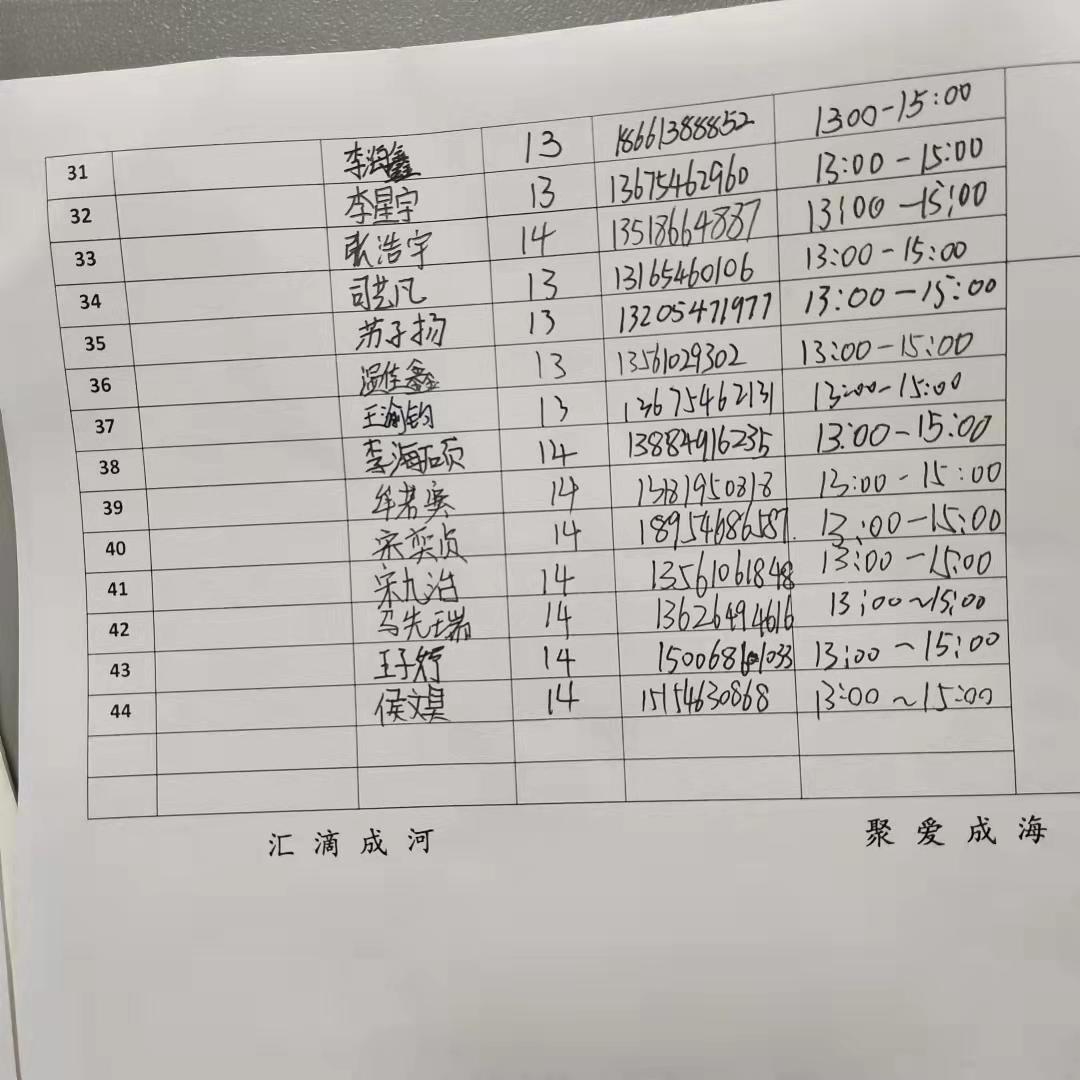 31 李润鑫 13 18661388852 1300-15:00
32 李星宇 13 13675462960 13:00-15:00
33 张浩宇 14 13518664887 13:00-15:00
34 司艺凡 13 13165460106 13:00-15:00
35 苏子扬 13 13205471977 13:00-15:00
36 温佳鑫 13 13561029302 13:00-15:00
37 王渝钧 13 13675462131 13:00-15:00
38 李海硕 14 13884916235 13:00-15:00
39 牟若奕 14 13181950818 13:00-15:00
40 宋奕贞 14 18954686587 13:00-15:00
41 宋九治 14 13561061848 13:00-15:00
42 马先瑞 14 13626494616 13:00~15:00
43 王子 14 13:00~15:00
44 侯文昊 14 15154630868 13:00~15:00
汇滴成河 聚爱成海